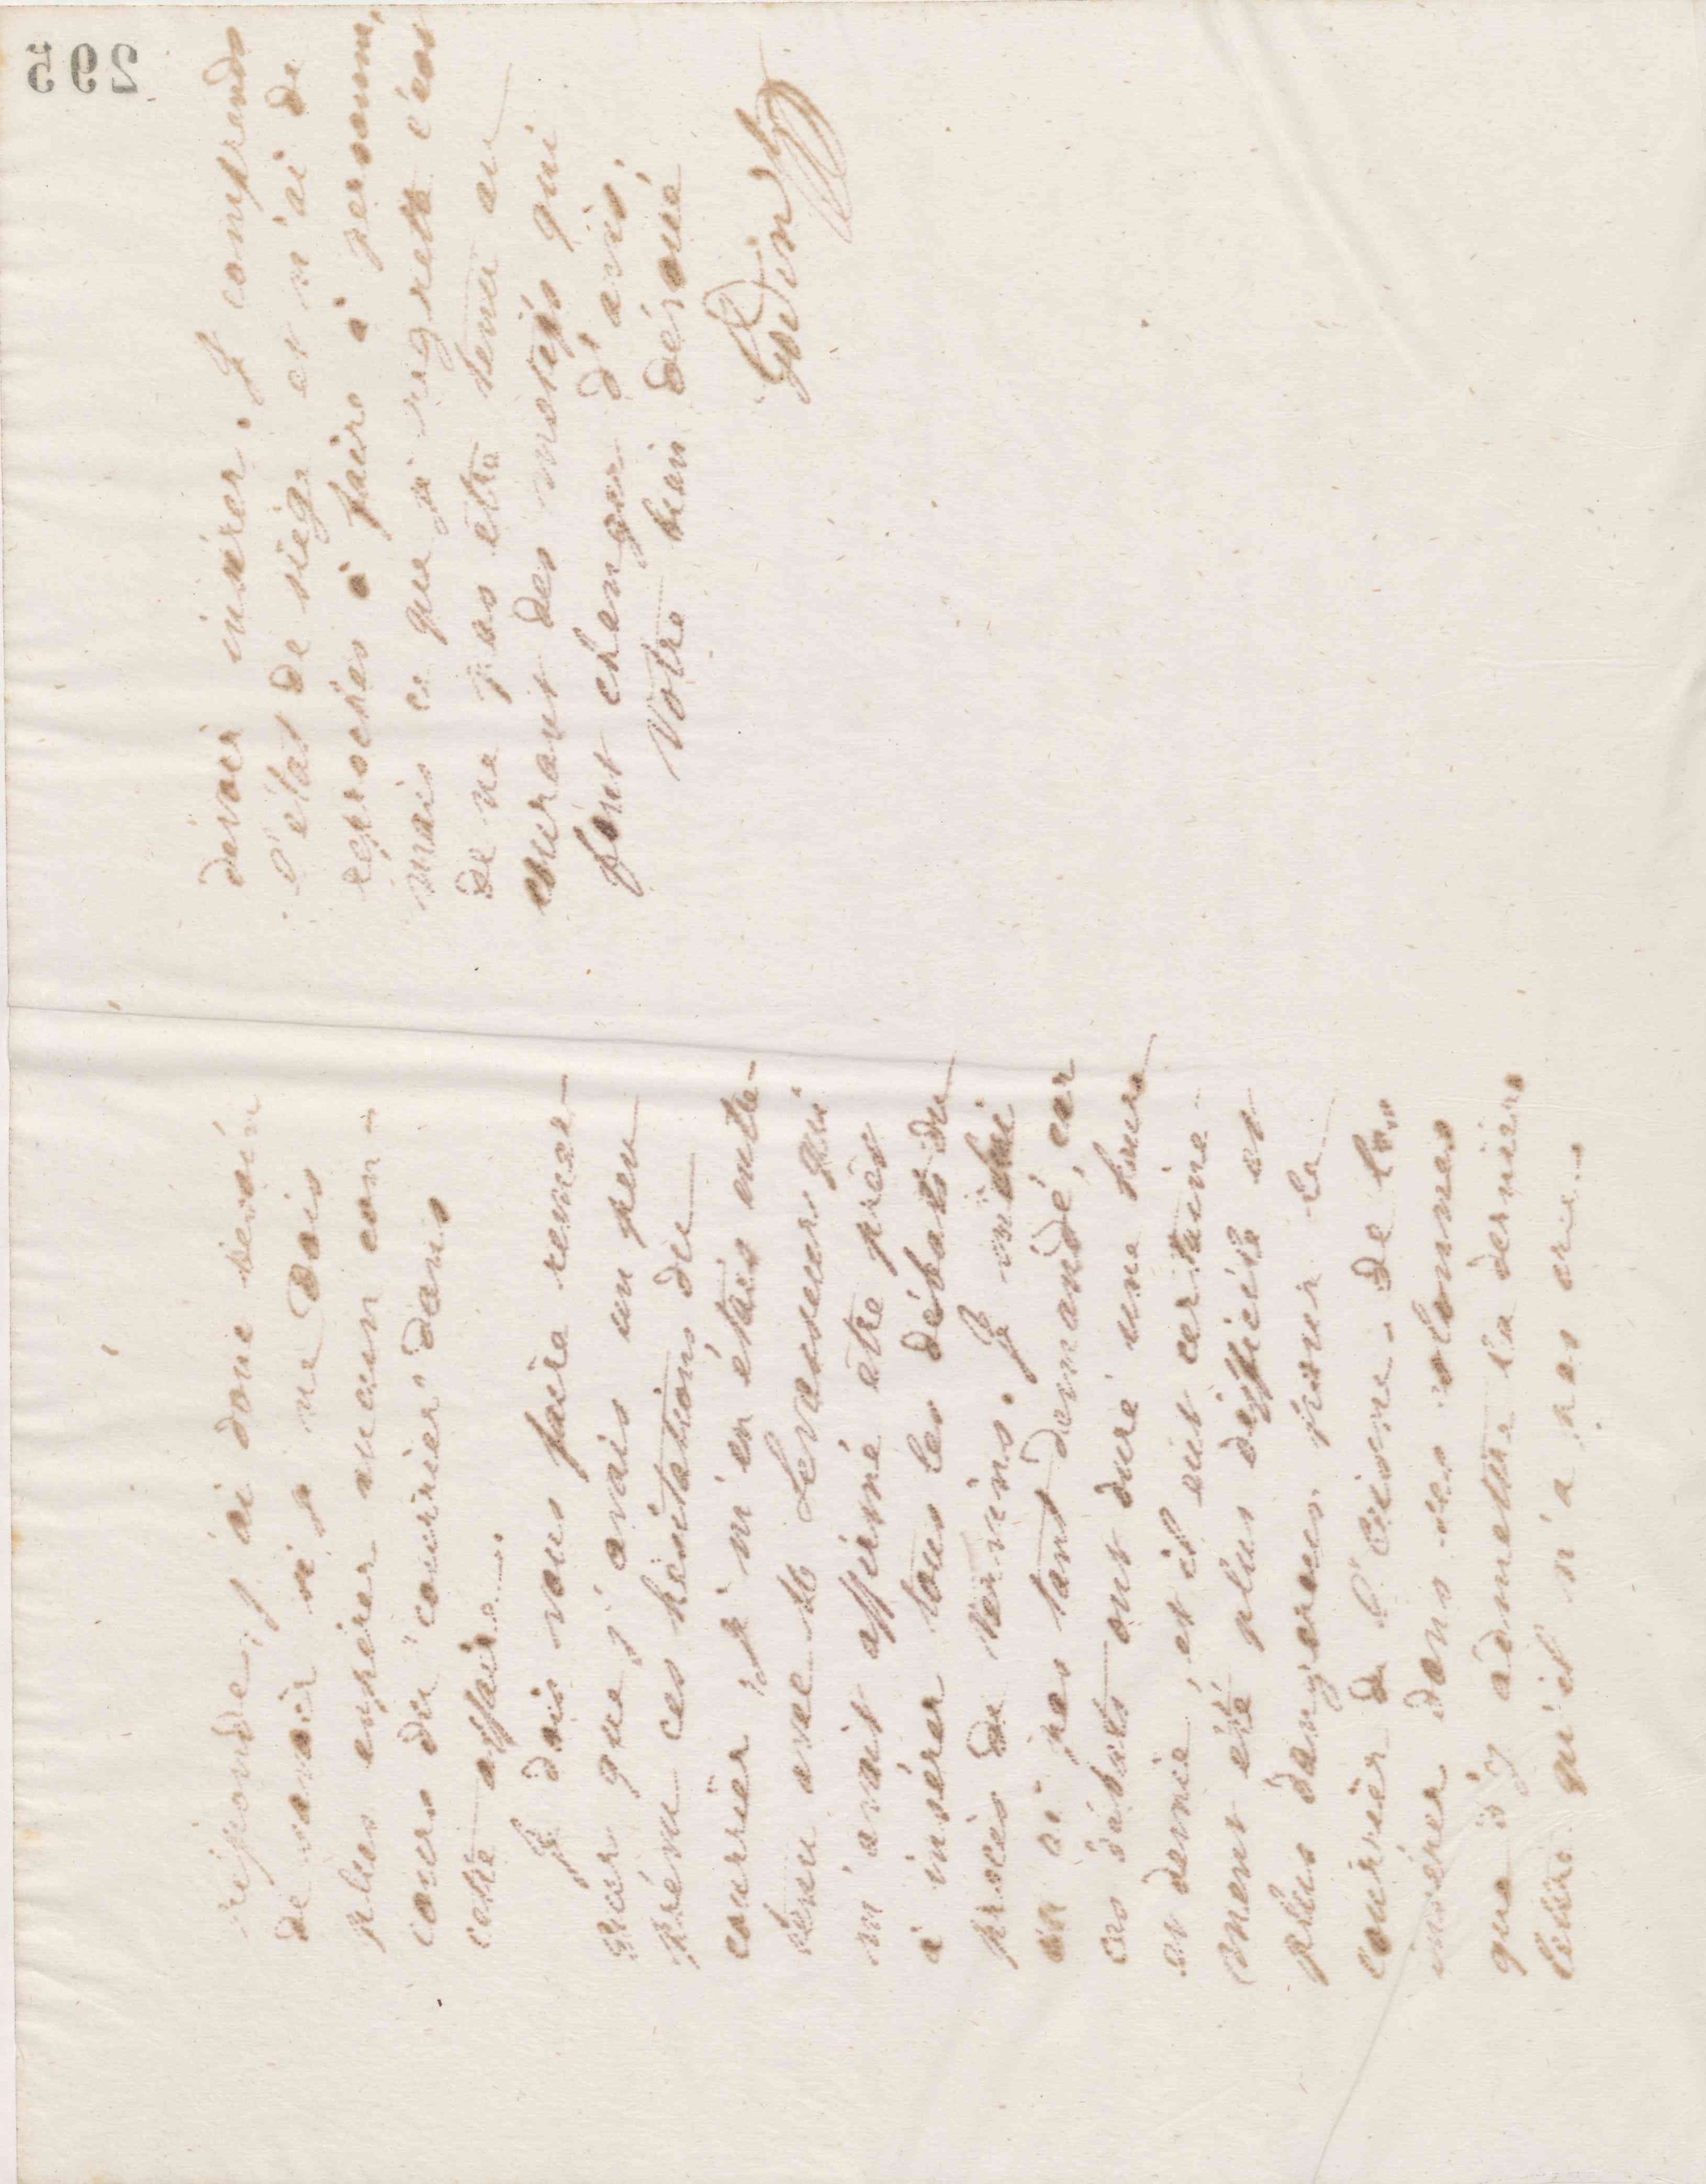 réponde, j'ai donc besoin
de savoir si je ne dois
plus espérer aucun con-
cours du "courrier" dans
cette affaire.
Je dois vous faire remar-
quer que j'avais un peu
prévu ces hésitations du
courrier, je m'en étais entre-
tenu avec M Levasseur qui
m'avait affirmé être prêt
à insérer tous les débats du
procès de Vervins. Je n'
en ai pas tant demandé, car
ces débats ont duré une heure
et demie, et il eut certaine-
ment été plus difficile et
plus dangereux pour le
courrier de l'Aisne de les
insérer dans ses colonnes
que d'y admettre la dernière
lettre qu'il n'a pas cru
devoir insérer. Je comprends
l'état de siège et n'ai de
reproches à faire à personne,
mais ce que je regrette c'est
de ne pas être tenu au
courant des motifs qui
font changer d'avis.
Votre bien dévoué
Godin
295